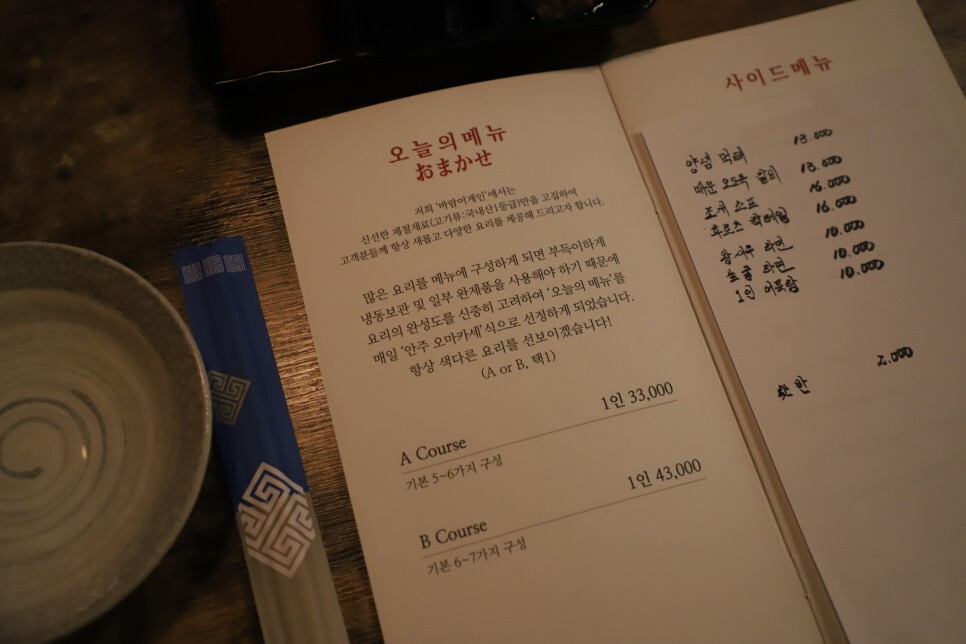 오늘의메뉴
おまかせ
저희 '바람어게인'에서는
신선한 제철재료(고기류:국내산1등급)만을 고집하여
고객분들께 항상 새롭고 다양한 요리를 제공해 드리고자 합니다.
많은 요리를 메뉴에 구성하게 되면 부득이하게
냉동보관 및 일부 완제품을 사용해야 하기 때문에
요리의 완성도를 신중히 고려하여 '오늘의 메뉴'를
매일 '안주 오마카세'식으로 선정하게 되었습니다.
항상 색다른 요리를 선보이겠습니다!
(A or B, 택1)
A Course 1인 33,000
기본 5~6가지 구성
B Course 1인 43,000
기본 6~7가지 구성
사이드메뉴
양념 먹태 13.000
매운 오도독 갈비 13.000
조개 스프 16.000
후르츠 칵테일 16.000
왕새우 라면 10.000
라면 10.000
1인 어묵탕 10.000
햇반 2.000